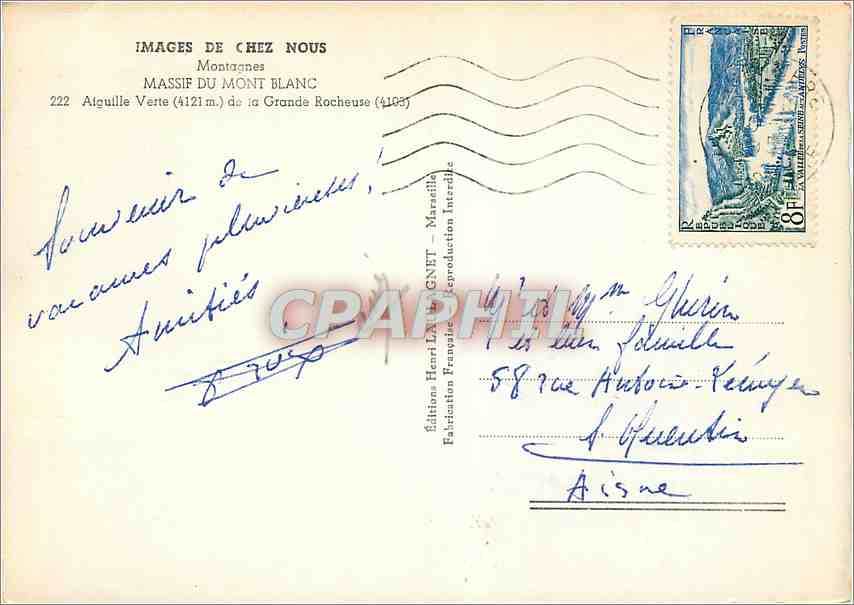 IMAGES DE CHEZ NOUS
Montagnes
MASSIF DU MONT BLANC
222 Aiguille Verte (4121 m.) de la Grande Rocheuse (4103)
Souvenir de
vacances pluvieuses!
Amitiés
Éditions Henri LA GNET — Marseille
Fabrication Française Reproduction Interdite
CPAPHIL
REPUBLIQUE FRANÇAISE
LA VALLÉE DE LA SEINE AUX ANDELYS
POSTES
8F
Guérin
et leur famille
58 rue Antoine
St Quentin
Aisne